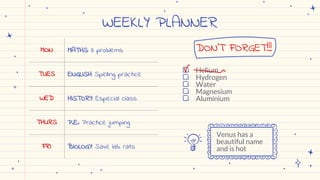 WEEKLY PLANNER
MON MATHS 3 problems
TUES ENGLISH Spelling practice
WED HISTORY Especial class
THURS P.E. Practice jumping
FRI BIOLOGY Save lab rats
DON'T FORGET!!!
Helium
Hydrogen
Water
Magnesium
Aluminium
Venus has a
beautiful name
and is hot